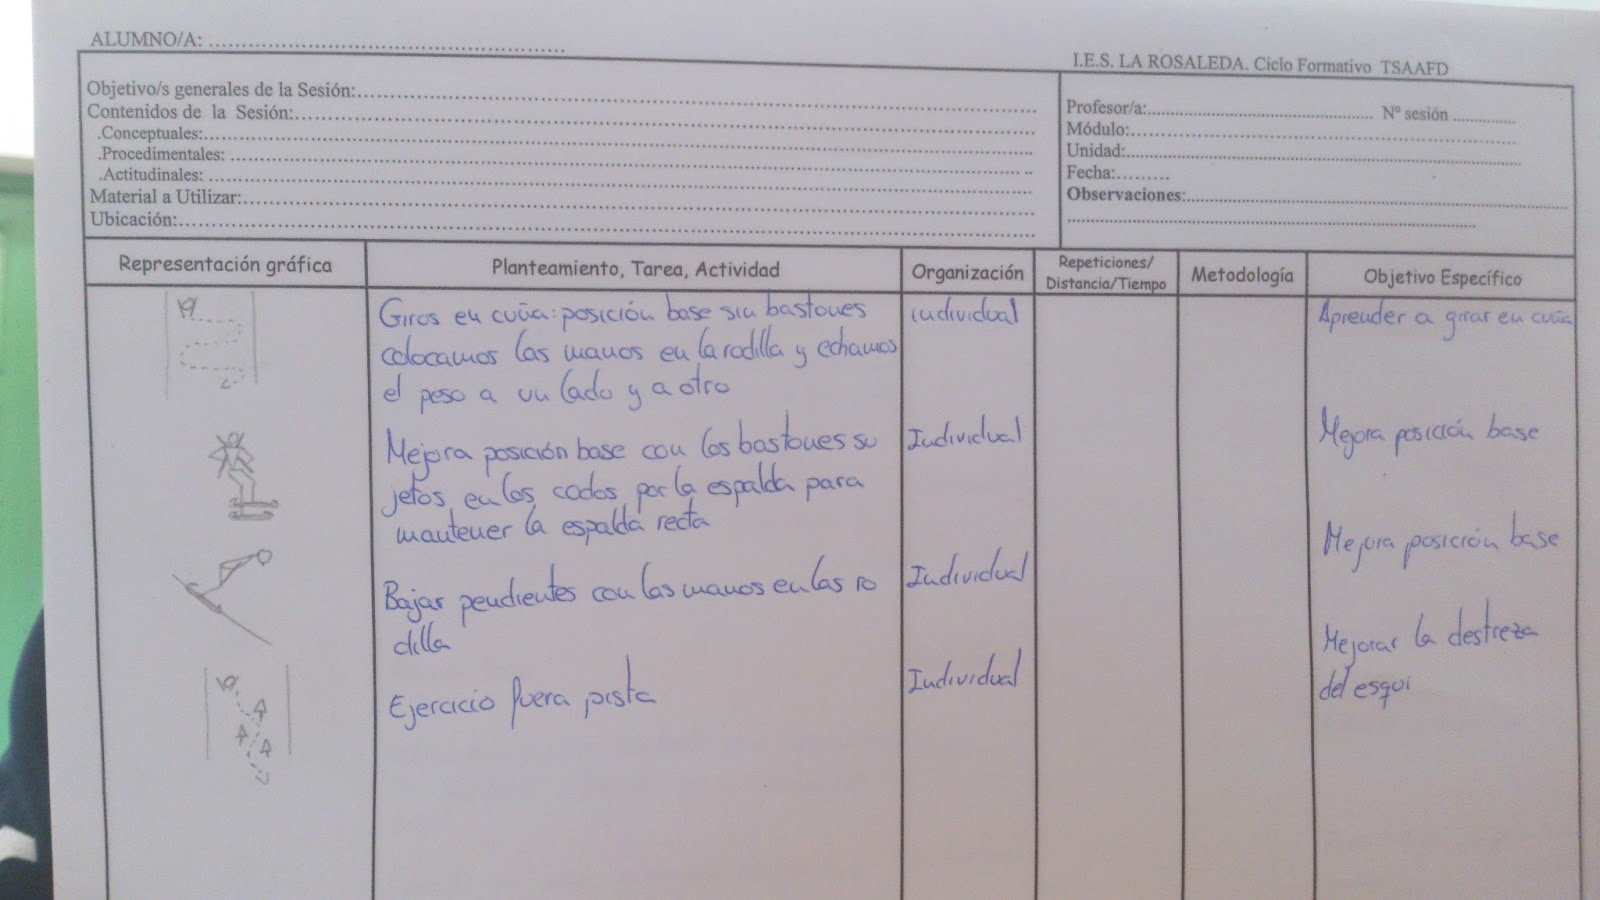 ALUMNO/A: ..........................................................
I.E.S. LA ROSALEDA. Ciclo Formativo TSAAFD
Objetivo/s generales de la Sesión:..........................................................
Contenidos de la Sesión:..........................................................
.Conceptuales:..........................................................
.Procedimentales: ..........................................................
.Actitudinales: ..........................................................
Material a Utilizar:..........................................................
Ubicación:..........................................................
Profesor/a:.......................................... Nº sesión ...............
Módulo:..........................................................
Unidad:..........................................................
Fecha:.........
Observaciones:..........................................................
..........................................................
Representación gráfica
Planteamiento, Tarea, Actividad
Organización
Repeticiones/
Distancia/Tiempo
Metodología
Objetivo Específico
Giros en cuña: posición base sin bastones
colocamos las manos en la rodilla y echamos
el peso a un lado y a otro
individual
Aprender a girar en cuña
Mejora posición base con los bastones su
jetos en los codos por la espalda para
mantener la espalda recta
Individual
Mejora posición base
Bajar pendientes con las manos en las ro
dilla
Individual
Mejora posición base
Ejercicio fuera pista
Individual
Mejorar la destreza
del esqui